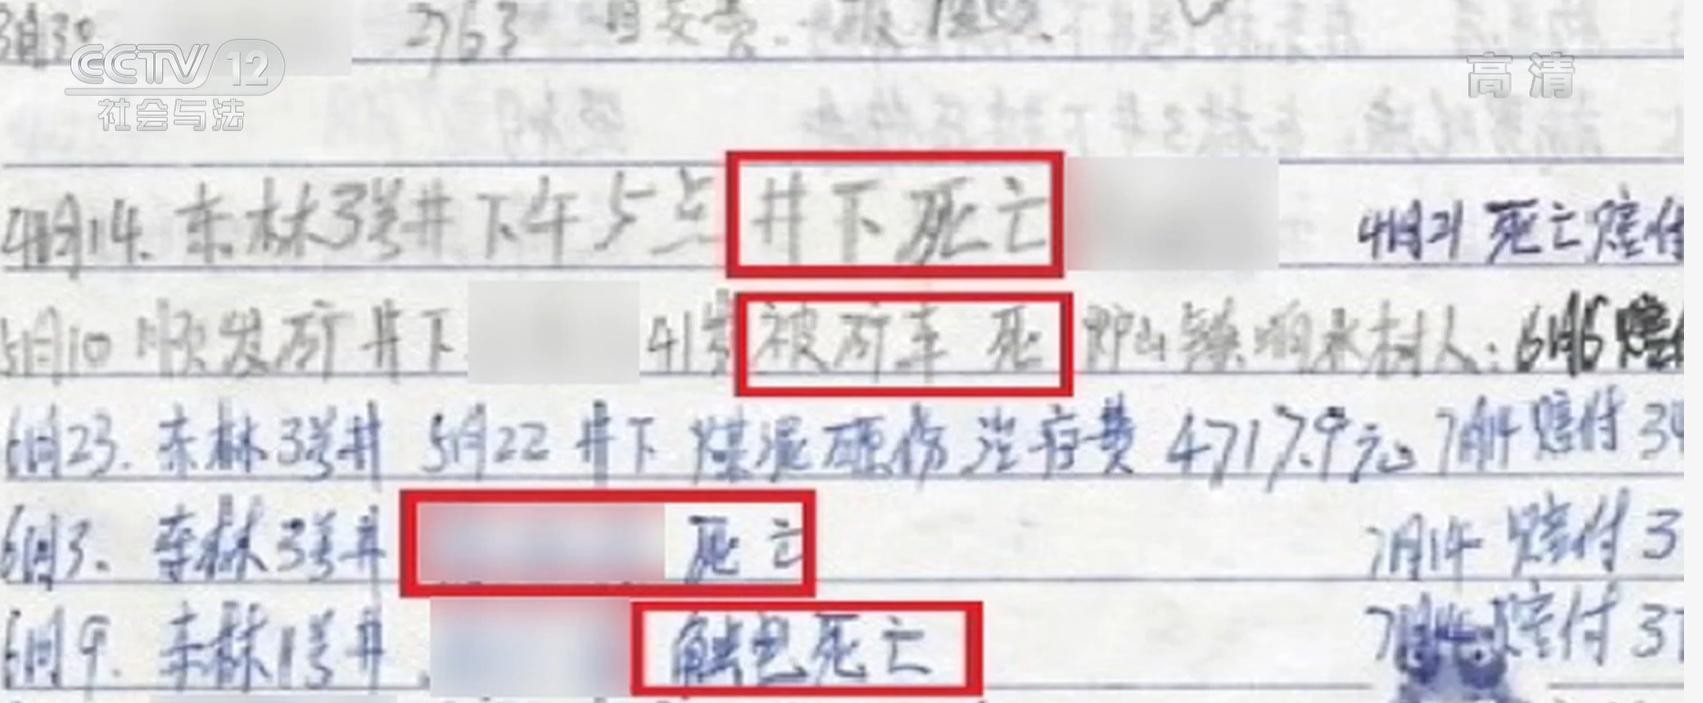 3月30 2763
CCTV 12 高清
社会与法
4月14. 东林3号井下午5点 井下死亡 4月21 死亡赔付
5月10 顺发矿井下 41岁 被矿车 死 响水村人: 6月6赔付
6月23. 东林3号井 5月22 井下 煤泥砸伤 治疗费 4717.9元 7月14 赔付 34
6月3. 东林3号井 死亡 7月14 赔付 3
6月9. 东林1号井. 触电死亡 7月14 赔付 37